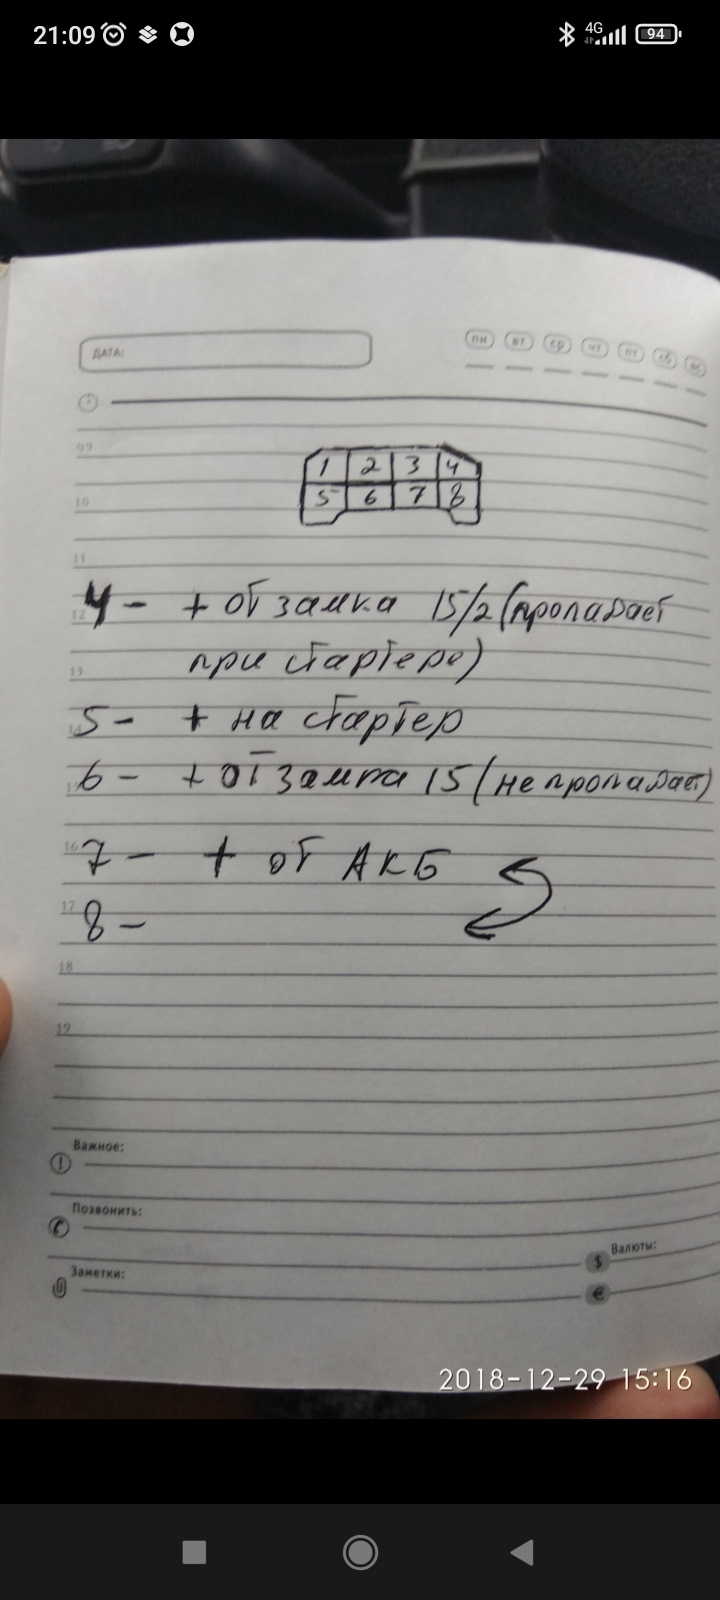 21:09
4G
94
ДАТА:
пн вт ср чт пт сб вс
09
1 2 3 4
10
5 6 7 8
11
12
4 - + от замка 15/2 (пропадает
13
при стартере)
14
5 - + на стартер
15
6 - + от замка 15 (не пропадает)
16
7 - + от АКБ
17
8 -
18
19
Важное:
Позвонить:
Валюты:
$
Заметки:
€
2018-12-29 15:16